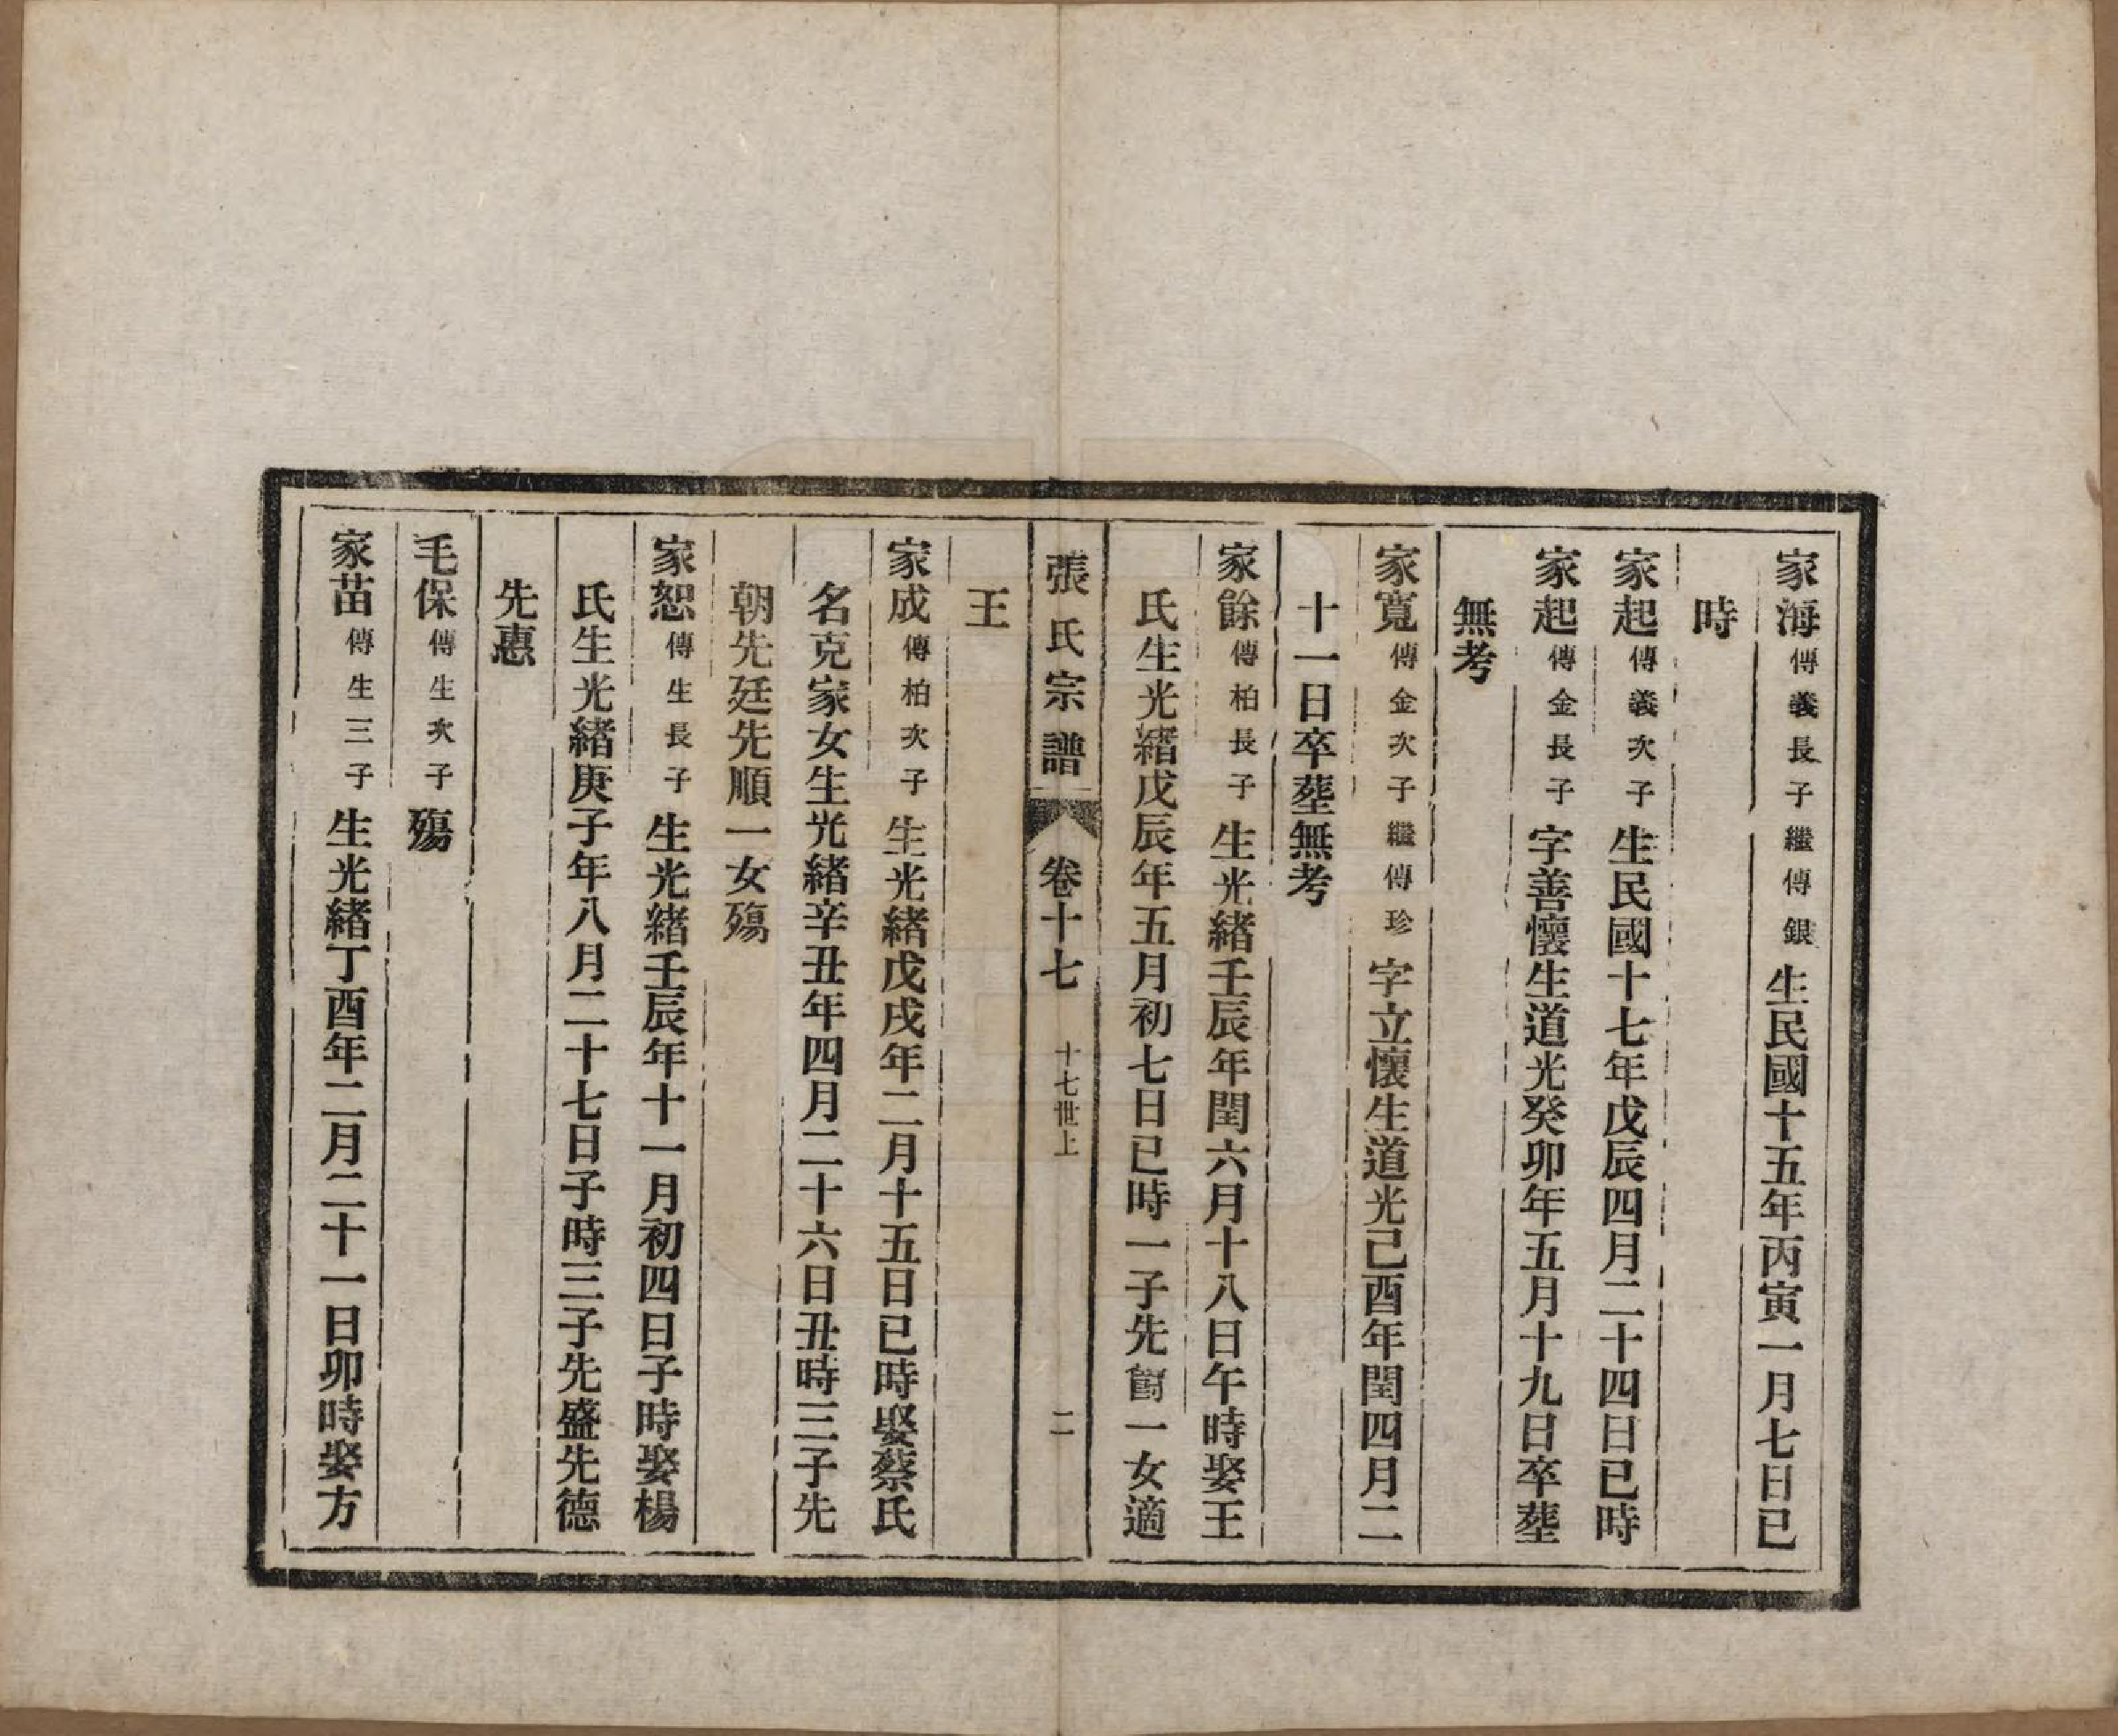 家海傳義長子繼傳銀生民國十五年丙寅一月七日巳
時
家起傳義次子生民國十七年戊辰四月二十四日巳時
家起傳金長子字善懷生道光癸卯年五月十九日卒塟
無考
家寬傳金次子繼傳珍字立懷生道光己酉年閏四月二
十一日卒塟無考
家餘傳柏長子生光緒壬辰年閏六月十八日午時娶王
氏生光緒戊辰年五月初七日巳時一子先一女適
張氏宗譜 卷十七 十七世上 二
王
家成傳柏次子生光緒戊戌年二月十五日巳時娶蔡氏
名克家女生光緒辛丑年四月二十六日丑時三子先
朝先廷先順一女殤
家恕傳生長子生光緒壬辰年十一月初四日子時娶楊
氏生光緒庚子年八月二十七日子時三子先盛先德
先惠
毛保傳生次子殤
家苗傳生三子生光緒丁酉年二月二十一日卯時娶方